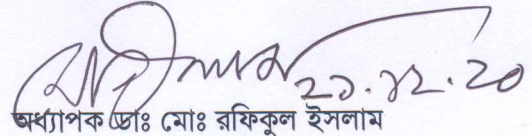 ২১.১২.২০
অধ্যাপক ডাঃ মোঃ রফিকুল ইসলাম